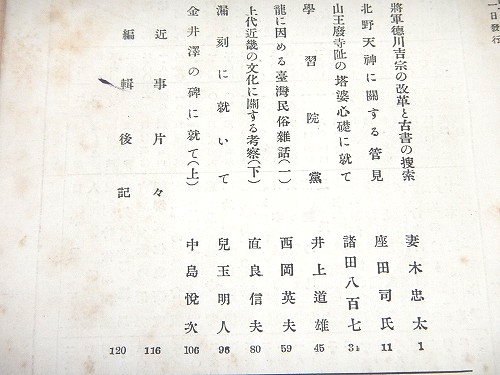 一日發行
將軍德川吉宗の改革と古書の搜索 妻木忠太 1
北野天神に關する管見 座田司氏 11
山王廢寺阯の塔婆心礎に就て 諸田八百七
學習院黨 井上道雄 45
龍に因める臺灣民俗雜話(一) 西岡英夫 59
上代近畿の文化に關する考察(下) 直良信夫 80
漏刻に就いて 兒玉明人 96
金井澤の碑に就て(上) 中島悅次 106
近事片々 116
編輯後記 120